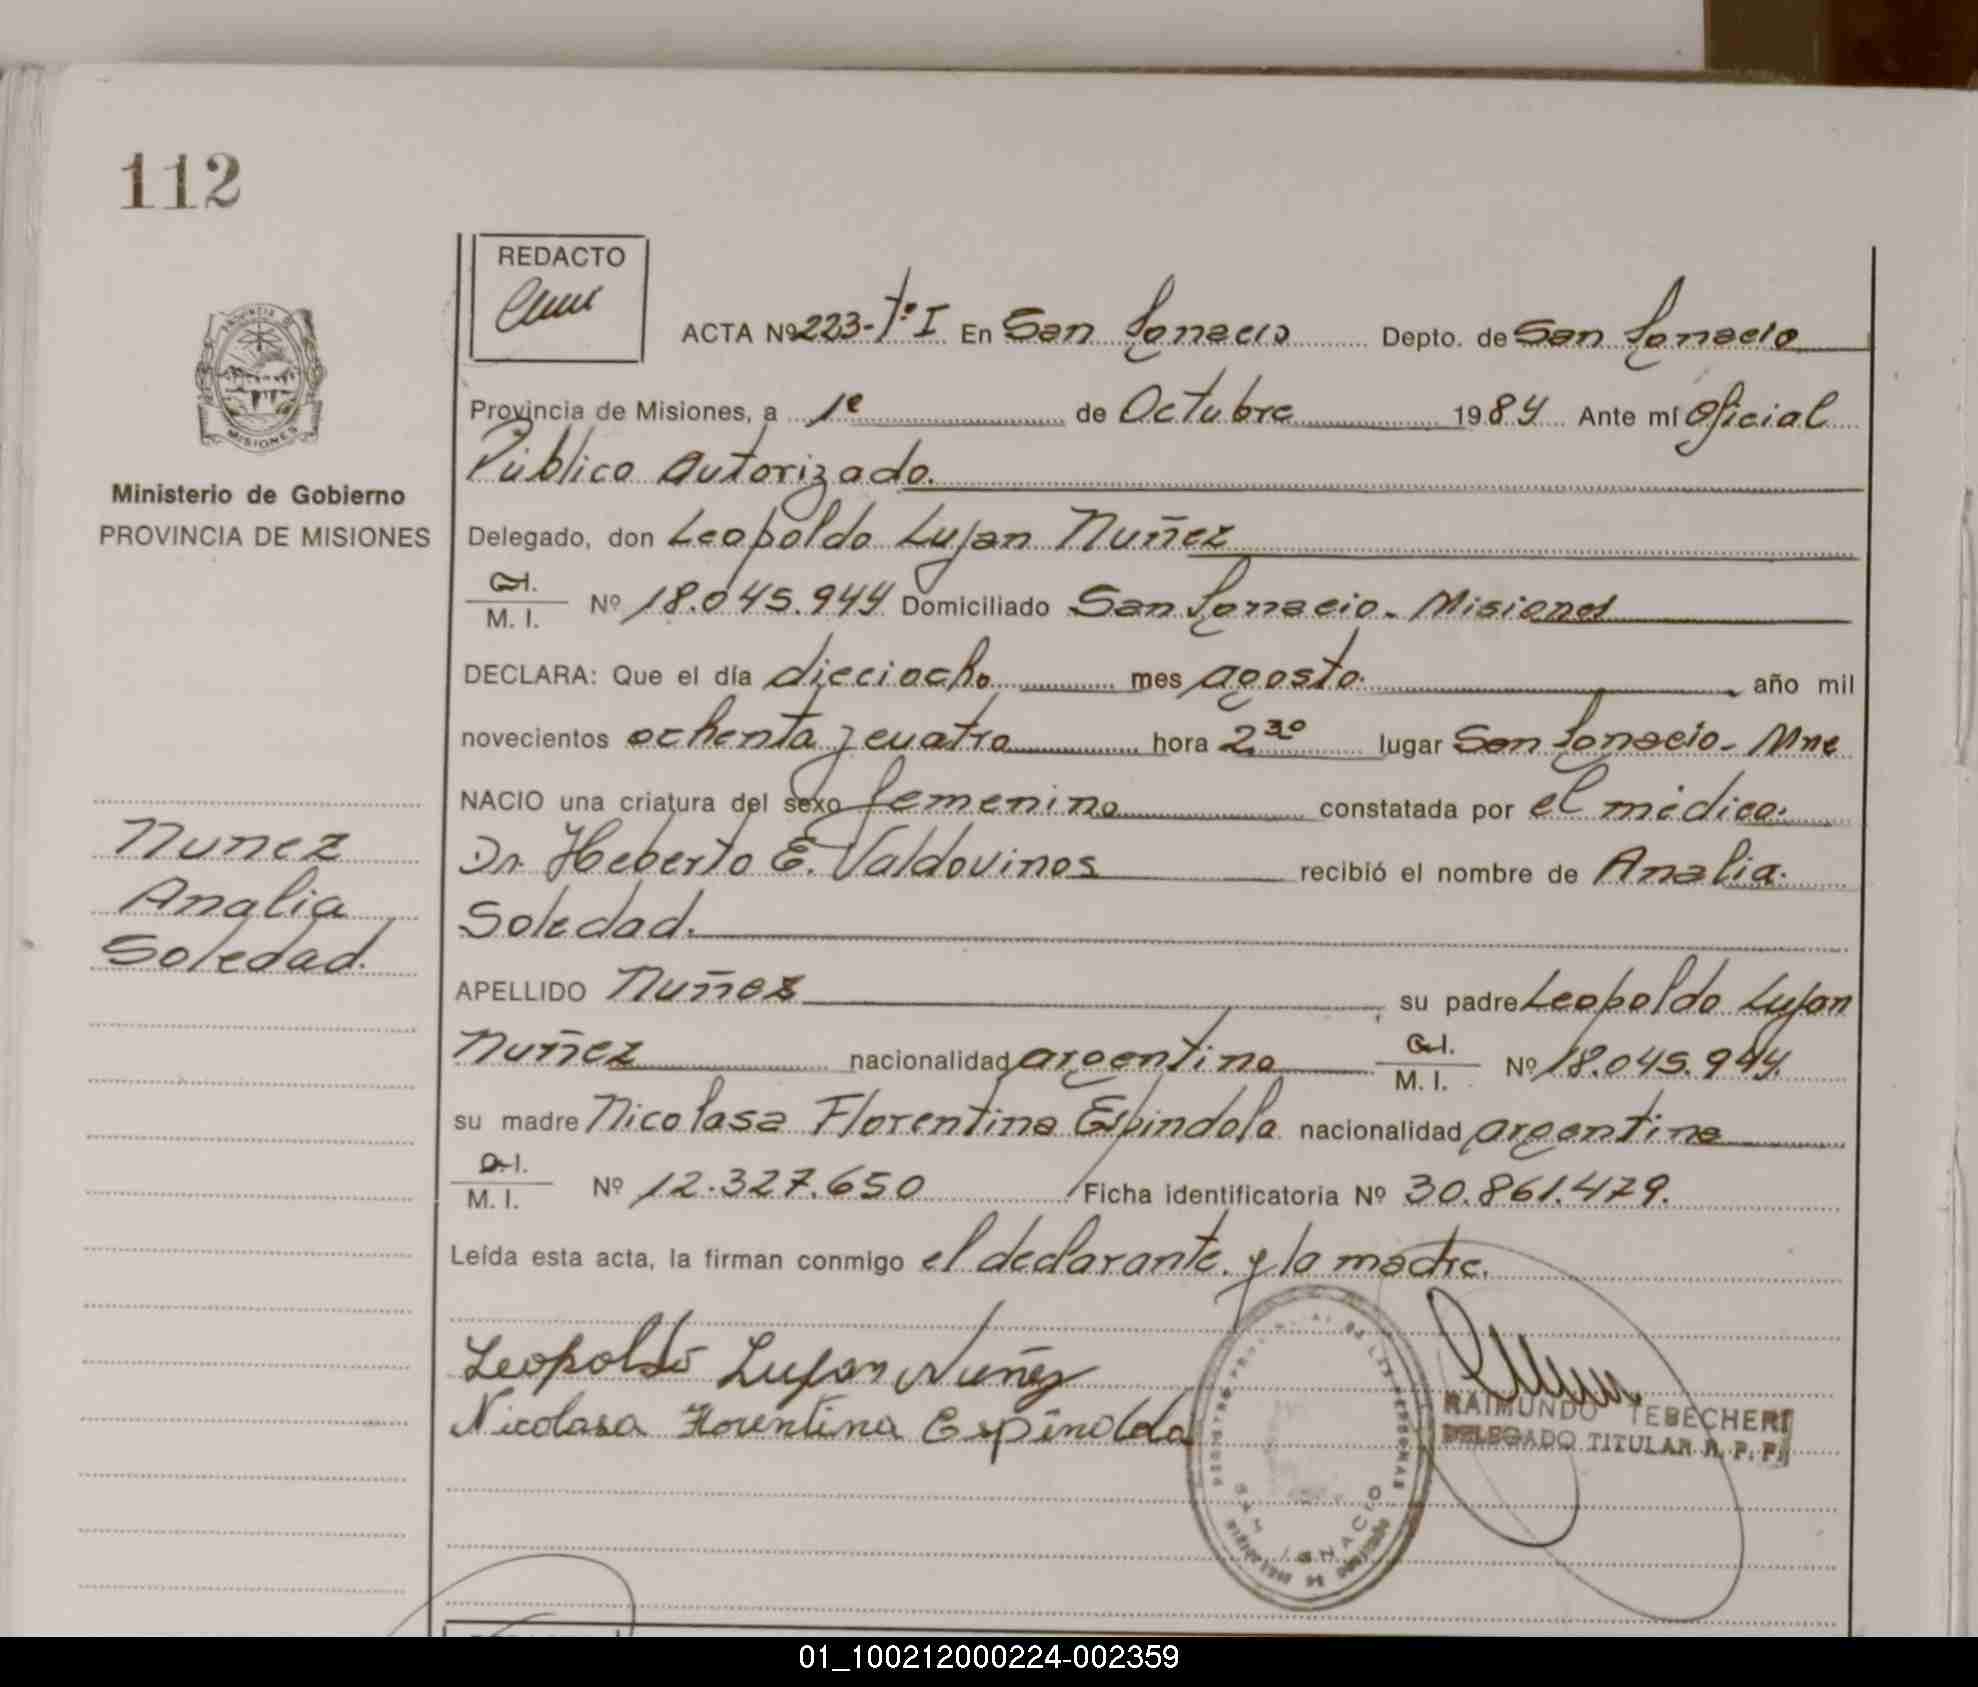 112
REDACTO
ACTA Nº 223-Tº I En San Ignacio Depto. de San Ignacio
PROVINCIA DE MISIONES
Provincia de Misiones, a 1º de Octubre 1984 Ante mí Oficial
Público Autorizado.
Ministerio de Gobierno
PROVINCIA DE MISIONES
Delegado, don Leopoldo Lujan Nuñez
C.I.
M. I. Nº 18.045.944 Domiciliado San Ignacio - Misiones
DECLARA: Que el día dieciocho mes agosto. año mil
novecientos ochenta y cuatro hora 2 30 lugar San Ignacio - Mnes
NACIO una criatura del sexo femenino constatada por el médico.
Dr. Heberto E. Valdovinos recibió el nombre de Analia.
Soledad.
Nunez
Analia
Soledad.
APELLIDO Nuñez su padre Leopoldo Lujan
Nuñez nacionalidad argentina C.I.
M. I. Nº 18.045.944.
su madre Nicolasa Florentina Espindola nacionalidad argentina
M. I. Nº 12.327.650 Ficha identificatoria Nº 30.861.479.
Leída esta acta, la firman conmigo el declarante y la madre.
Leopoldo Lujan Nuñez
Nicolasa Florentina Espindola
RAIMUNDO TEBECHERI
DELEGADO TITULAR R. P. P.
SAN IGNACIO
01_100212000224-002359